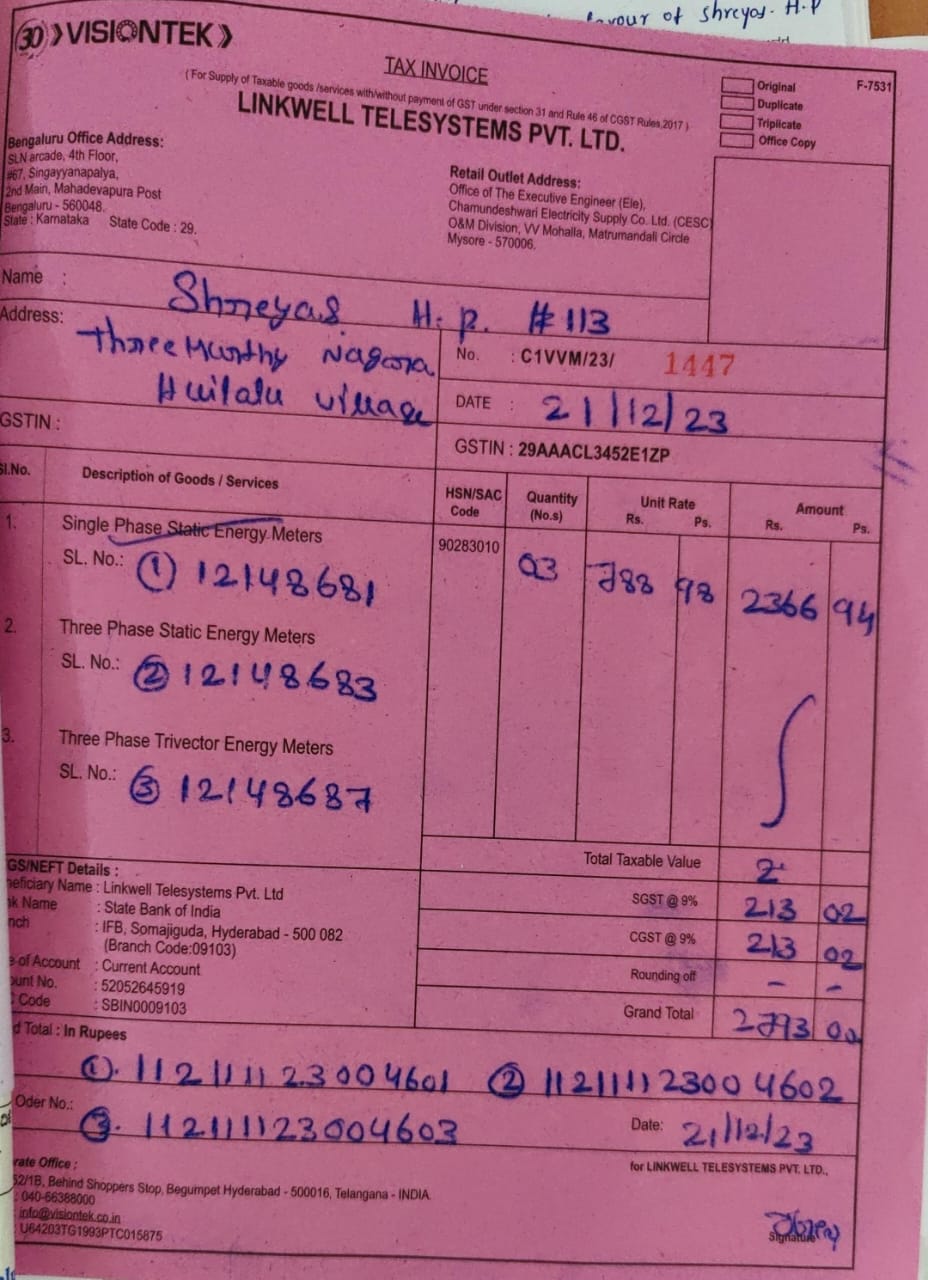 favour of Shreyas. H.P
30 VISIONTEK
TAX INVOICE
( For Supply of Taxable goods /services with/without payment of GST under section 31 and Rule 46 of CGST Rules,2017 )
LINKWELL TELESYSTEMS PVT. LTD.
Original
Duplicate
Triplicate
Office Copy
F-7531
Bengaluru Office Address:
SLN arcade, 4th Floor,
#67, Singayyanapalya,
2nd Main, Mahadevapura Post
Bengaluru - 560048.
State : Karnataka State Code : 29.
Retail Outlet Address:
Office of The Executive Engineer (Ele),
Chamundeshwari Electricity Supply Co. Ltd. (CESC)
O&M Division, VV Mohalla, Matrumandali Circle
Mysore - 570006.
Name : Shreyas. H. P. # 113
Address: Three Murthy Nagara
Huilalu Village
No. : C1VVM/23/ 1447
DATE : 21/12/23
GSTIN :
GSTIN : 29AAACL3452E1ZP
Sl.No. Description of Goods / Services HSN/SAC Code Quantity (No.s) Unit Rate Rs. Ps. Amount Rs. Ps.
1. Single Phase Static Energy Meters 90283010 03 788 98 2366 94
SL. No.: ① 12148681
2. Three Phase Static Energy Meters
SL. No.: ② 12148683
3. Three Phase Trivector Energy Meters
SL. No.: ③ 12148687
Total Taxable Value
SGST @ 9% 213 02
CGST @ 9% 213 02
Rounding off - -
Grand Total 2793 00
GS/NEFT Details :
neficiary Name : Linkwell Telesystems Pvt. Ltd
nk Name : State Bank of India
nch : IFB, Somajiguda, Hyderabad - 500 082
(Branch Code:09103)
e of Account : Current Account
ount No. : 52052645919
Code : SBIN0009103
d Total : In Rupees
①. 1121111123004601 ② 112111123004602
Oder No.:
③. 1121111123004603
Date: 21/12/23
rate Office :
52/1B, Behind Shoppers Stop, Begumpet Hyderabad - 500016, Telangana - INDIA
: 040-66388000
: info@visiontek.co.in
: U64203TG1993PTC015875
for LINKWELL TELESYSTEMS PVT. LTD.,
Signature